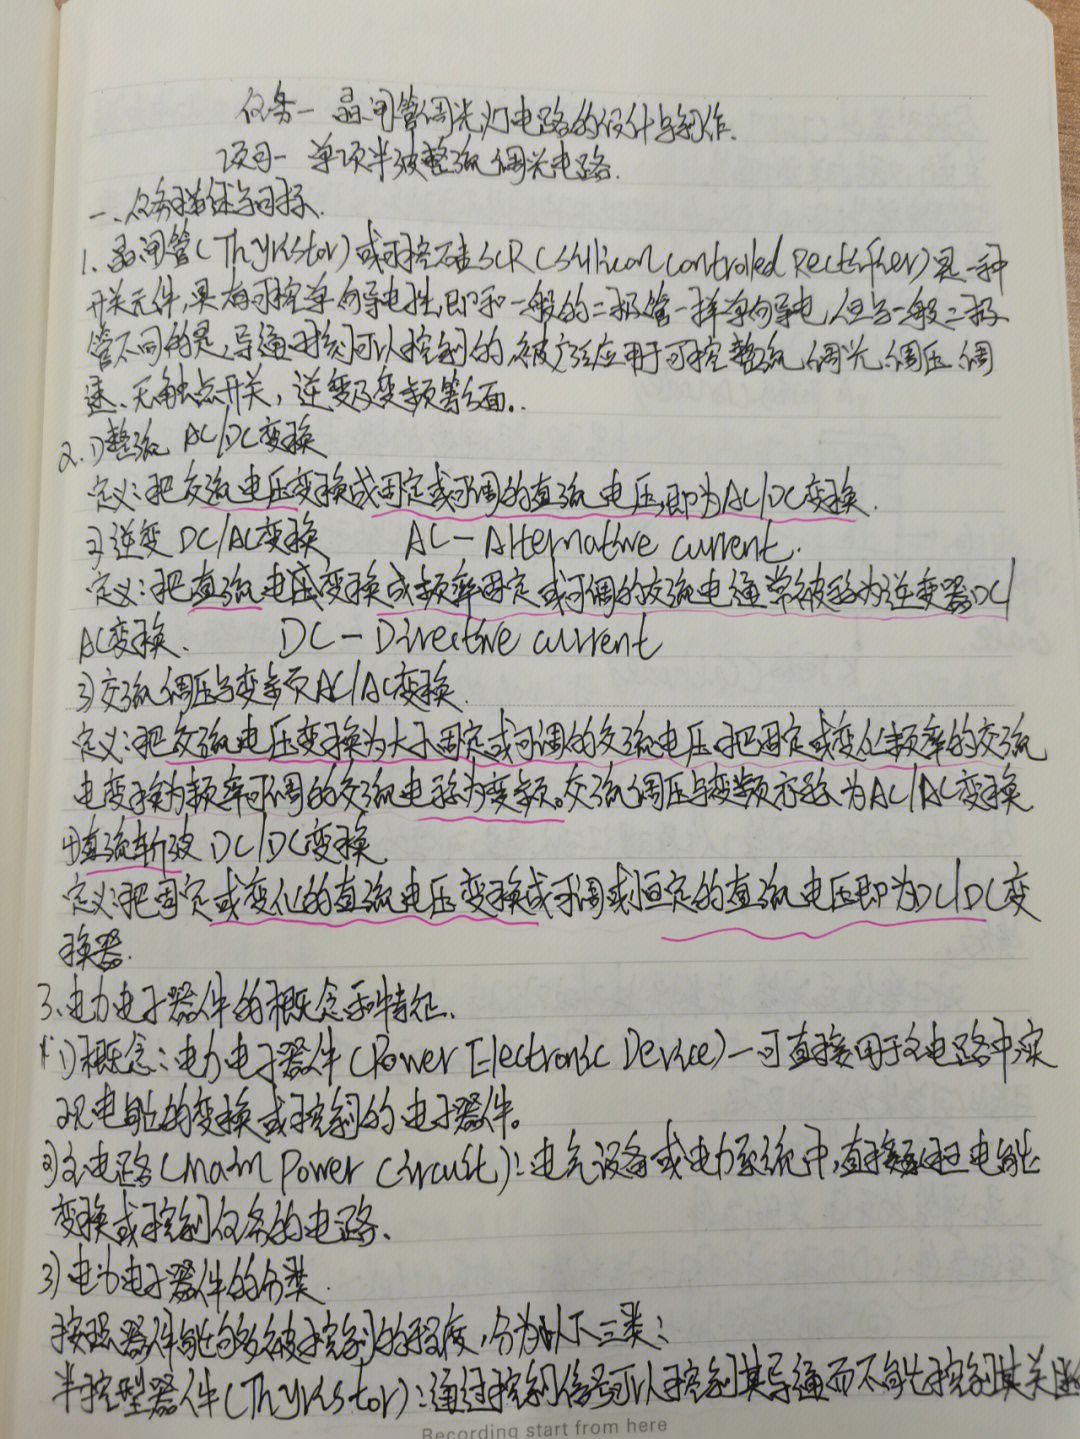 任务一 晶闸管调光灯电路的设计与制作.
项目一 单项半波整流调光电路.
一、任务描述与目标.
1. 晶闸管(Thyristor)或可控硅SCR(Silicon Controlled Rectifier)是一种
开关元件,具有可控单向导电性,即和一般的二极管一样单向导电,但与一般二极
管不同的是,导通时刻可以控制的,被广泛应用于可控整流、调光、调压、调
速、无触点开关,逆变及变频等方面.
2. 1)整流 AC/DC变换
定义:把交流电压变换成固定或可调的直流电压,即为AC/DC变换.
2)逆变 DC/AC变换 AC-Alternative current.
定义:把直流电压变换成频率固定或可调的交流电通常被称为逆变器DC/
AC变换. DC-Directive current
3)交流调压与变频AC/AC变换.
定义:把交流电压变换为大小固定或可调的交流电压.把固定或变化频率的交流
电变换为频率可调的交流电称为变频。交流调压与变频亦称为AC/AC变换
4)直流斩波 DC/DC变换
定义:把固定或变化的直流电压变换成可调或恒定的直流电压即为DC/DC变
换器.
3、电力电子器件的概念和特征.
1)概念:电力电子器件(Power Electronic Device)-可直接用于主电路中,实
现电能的变换或控制的电子器件。
2)主电路(Main Power Circuit):电气设备或电力系统中,直接承担电能
变换或控制任务的电路、
3)电力电子器件的分类.
按照器件能够被控制的程度,分为以下三类:
半控型器件(Thyristor):通过控制信号可以控制其导通而不能控制其关断
Recording start from here